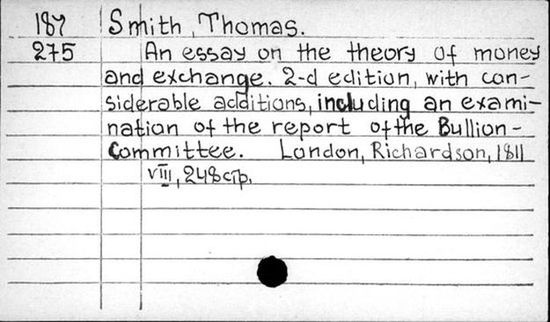 187 Smith, Thomas.
275 An essay on the theory of money
and exchange. 2-d edition, with con-
siderable additions, including an exami-
nation of the report of the Bullion-
Committee. London, Richardson, 1811
VIII, 248 стр.